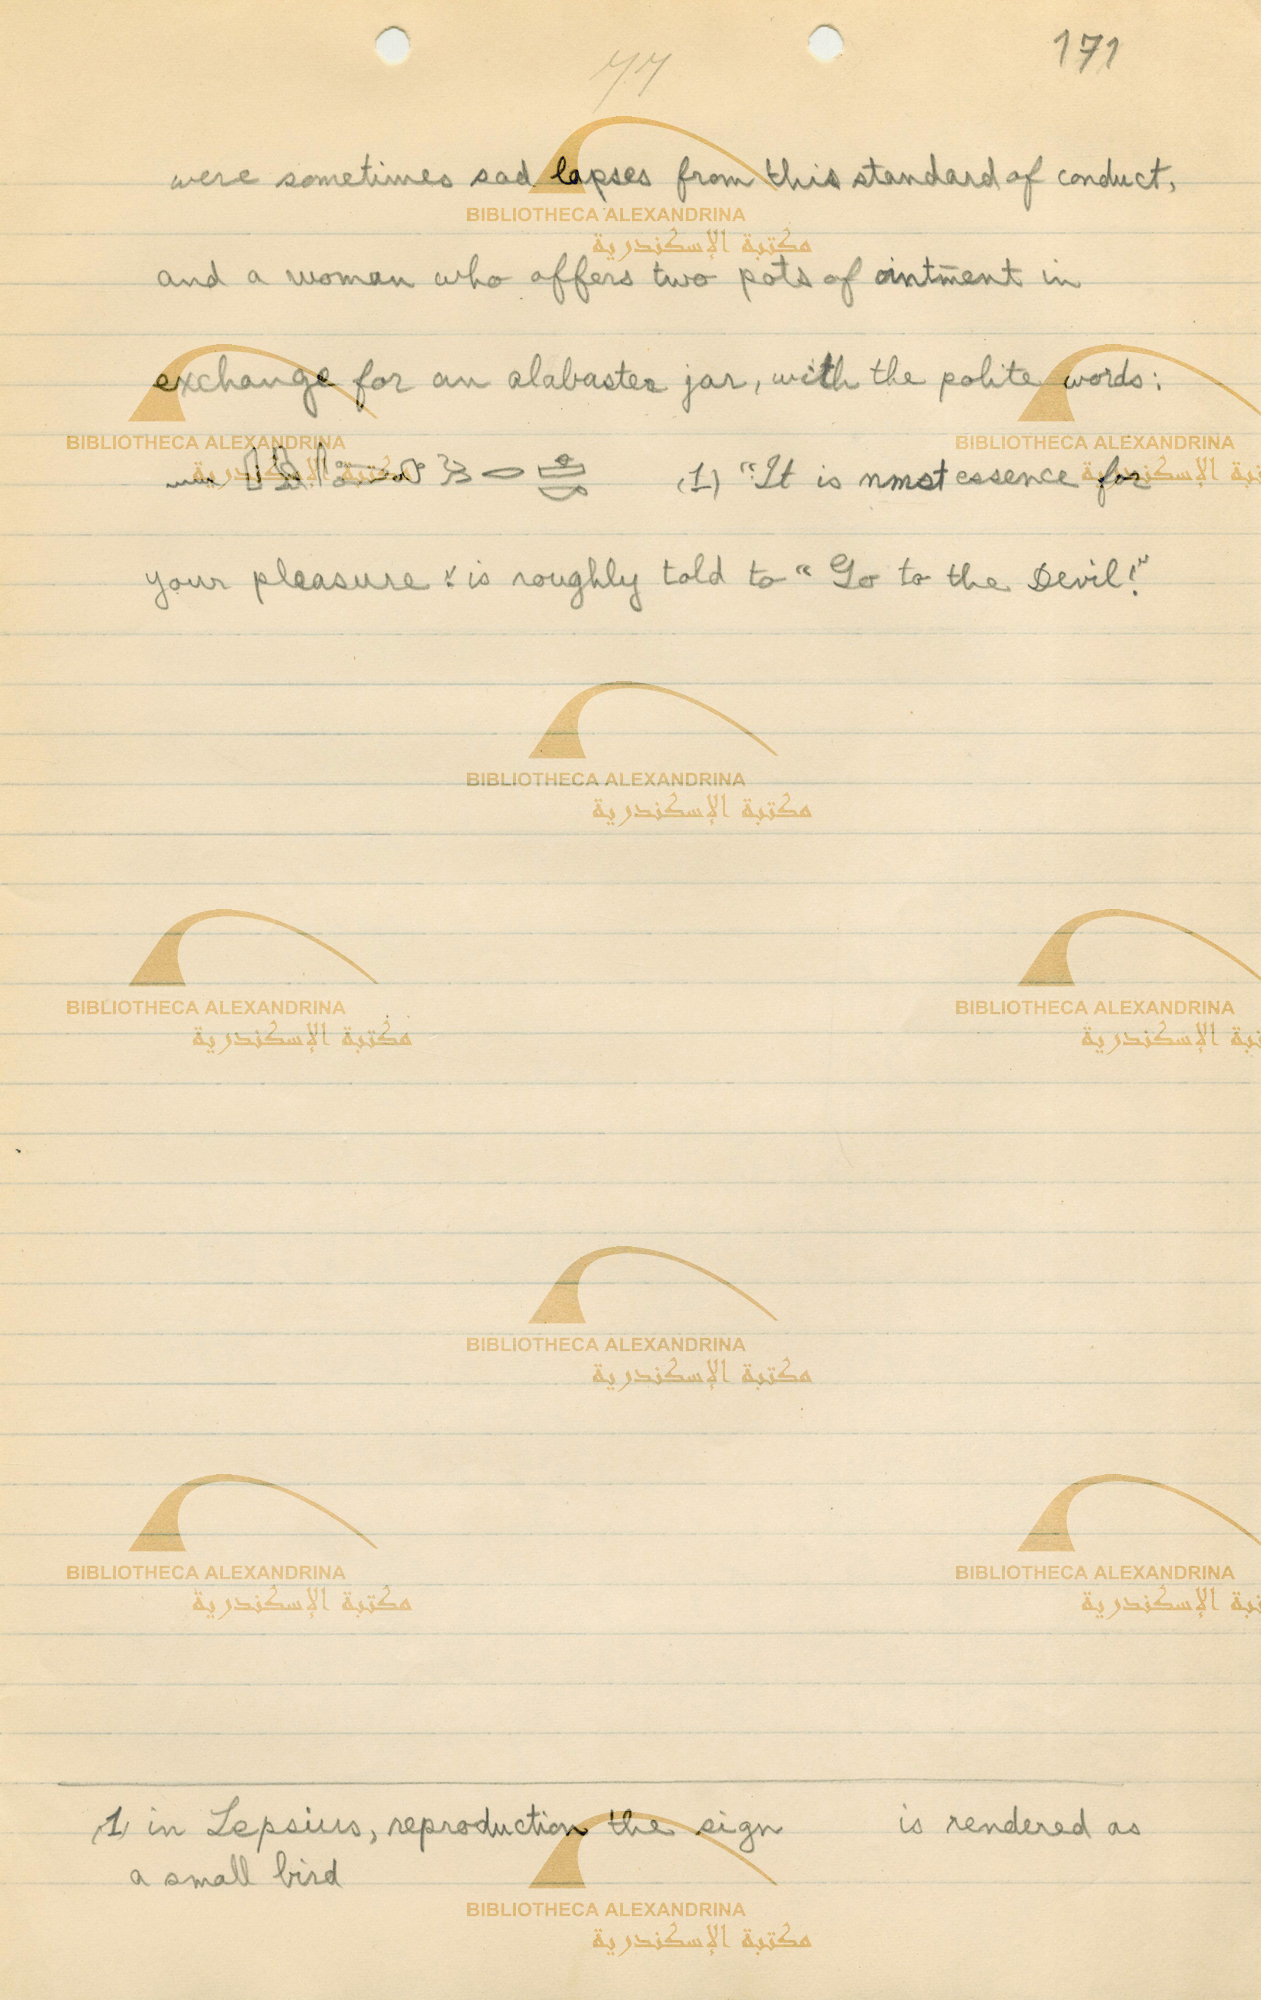 77
171
were sometimes sad lapses from this standard of conduct,
and a woman who offers two pots of ointment in
exchange for an alabaster jar, with the polite words:
(1) "It is nmst essence for
your pleasure" is roughly told to "Go to the Devil!"
(1) in Lepsius, reproduction the sign is rendered as
a small bird
BIBLIOTHECA ALEXANDRINA
مكتبة الإسكندرية